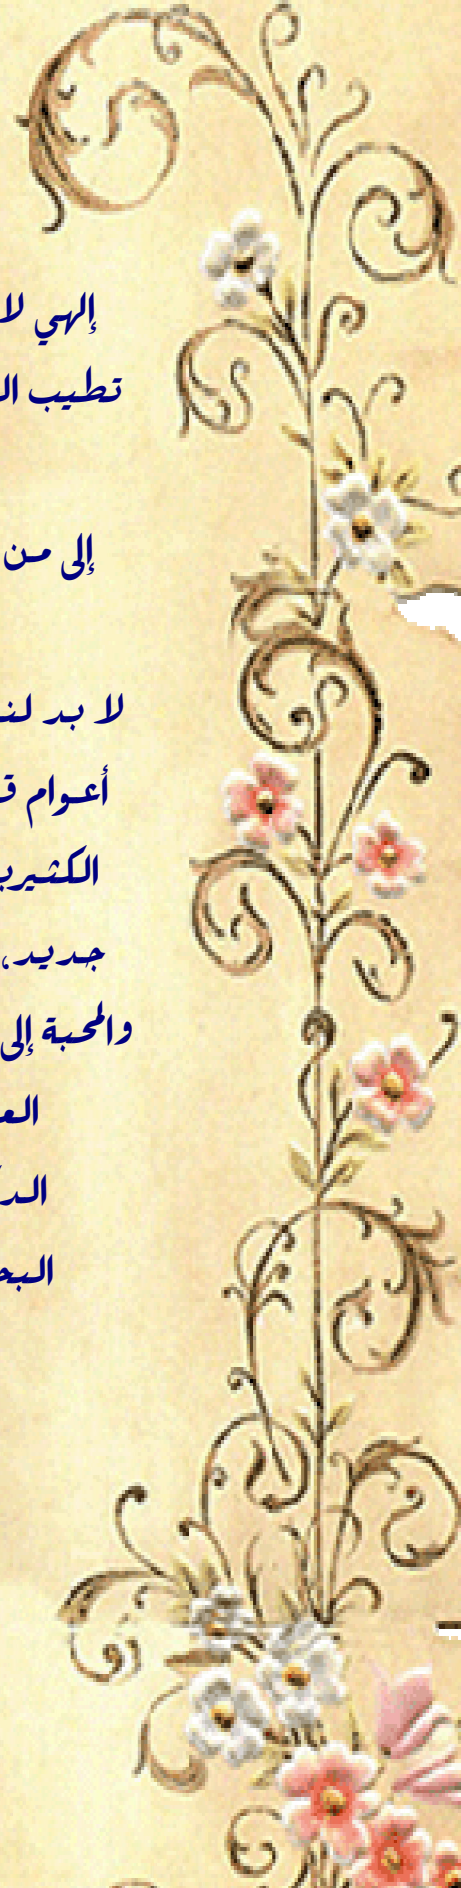 إلهي لا
تطيب ال
إلى من
لا بد لنـ
أعوام ق
الكثير
جديد،
والمحبة إلى
العـ
الد
البحـ